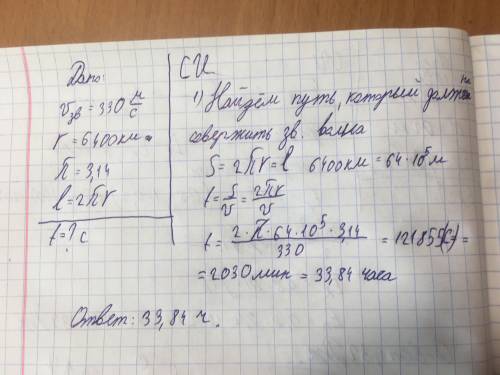 Дано:
v зв = 330 м/с
r = 6400 км
π = 3,14
l = 2πr
t = ? с
СИ
1) Найдём путь, который должна
совершить зв. волна
S = 2πr = l 6400 км = 64·10⁵ м
t = S/v = 2πr/v
t = 2·π·64·10⁵·3,14/330 = 121855 (с) =
= 2030 мин = 33,84 часа
Ответ: 33,84 ч.